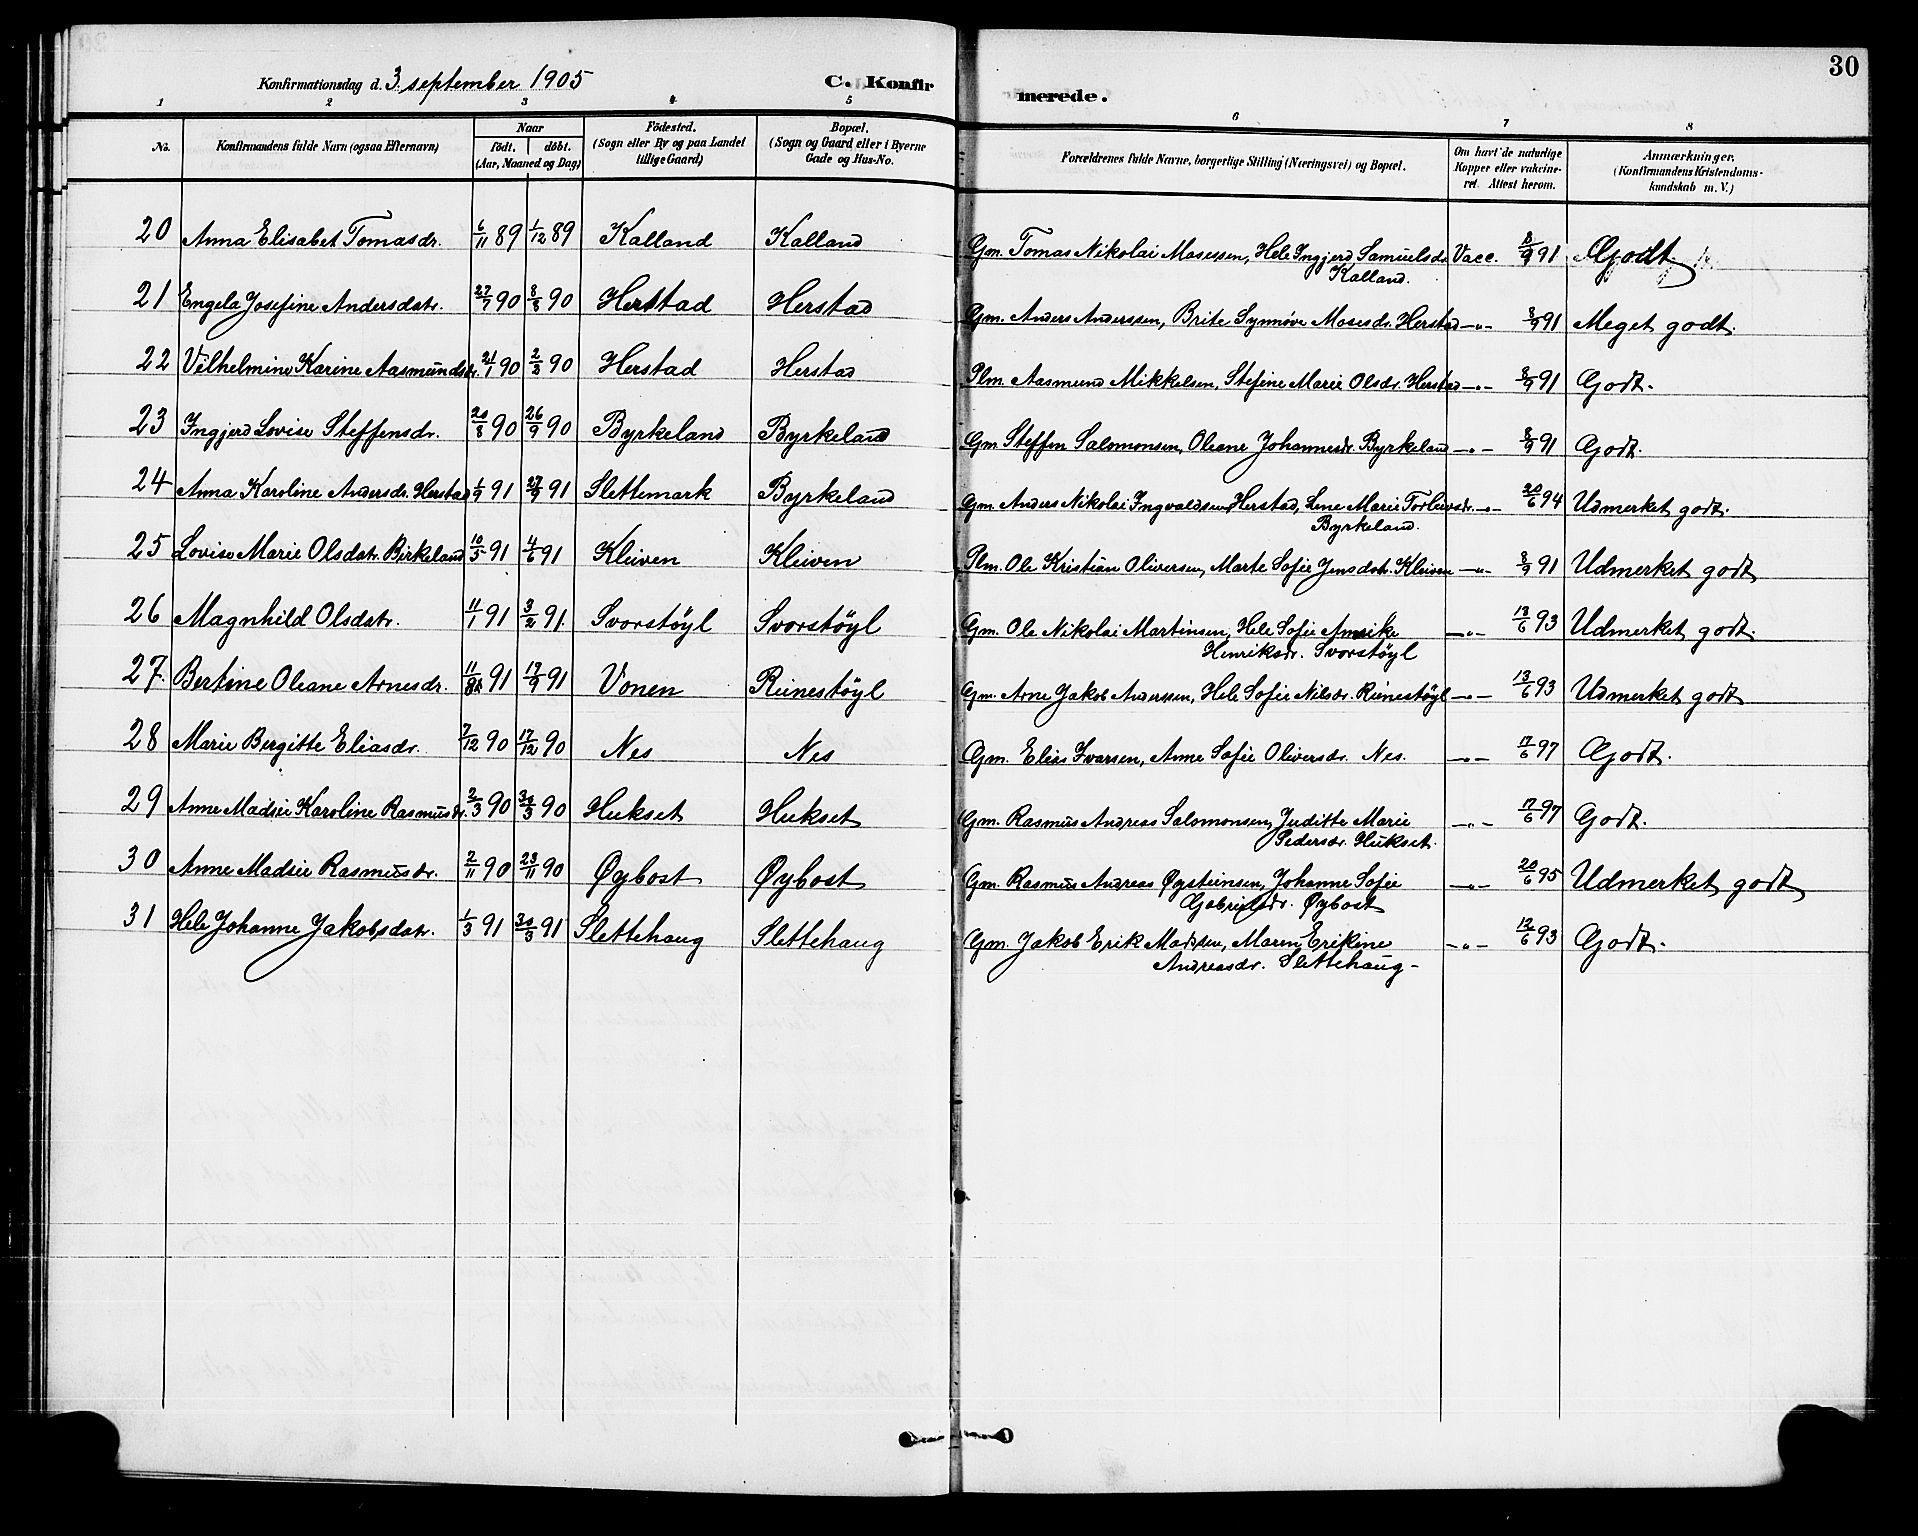 30
Konfirmationsdag d. 3 september 1905 C. Konfirmerede.
1 2 3 4 5 6 7 8
No. Konfirmandens fulde Navn (ogsaa Efternavn) Naar födt. döbt. (Aar, Maaned og Dag) Födested. (Sogn eller By og paa Landet tillige Gaard) Bopæl. (Sogn og Gaard eller i Byerne Gade og Hus-No. Forældrenes fulde Navne, borgerlige Stilling (Næringsvei) og Bopæl. Om havt de naturlige Kopper eller vakcineret. Attest herom. Anmærkninger. (Konfirmandens Kristendomskundskab m. V.)
20 Anna Elisabet Tomasdr. 6/11 89 1/12 89 Kalland Kalland Gm. Tomas Nikolai Mosessen, Hele Ingjerd Samuelsdr. Vacc. 8/9 91 Godt.
Kalland.
21 Engela Josefine Andersdatr. 27/7 90 8/8 90 Herstad Herstad Gm. Anders Anderssen, Brite Synnøve Mosesdr. Herstad -"- 8/9 91 Meget godt.
22 Vilhelmine Karine Aasmundsdr. 21/1 90 2/3 90 Herstad Herstad Plm. Aasmund Mikkelsen, Stefine Marie Olsdr. Herstad -"- 8/9 91 Godt.
23 Ingjerd Lovise Steffensdr. 20/8 90 26/9 90 Byrkeland Byrkeland Gm. Steffen Salomonsen, Oleane Johannesdr. Byrkeland -"- 8/9 91 Godt.
24 Anna Karoline Andersdr. Herstad 1/9 91 27/9 91 Slettemark Byrkeland Gm. Anders Nikolai Ingvaldsen Herstad, Lene Marie Torleivsdr. -"- 20/6 94 Udmerket godt.
Byrkeland.
25 Lovise Marie Olsdatr. Birkeland 10/5 91 4/6 91 Kleiven Kleiven Plm. Ole Kristian Oliversen, Marte Sofie Jensdatr. Kleiven -"- 8/9 91 Udmerket godt
26 Magnhild Olsdatr. 11/1 91 3/2 91. Svorstøyl Svorstøyl Gm. Ole Nikolai Martinsen, Hele Sofie Annike -"- 13/6 93 Udmerket godt.
Henriksdr. Svorstøyl
27. Bertine Oleane Arnesdr. 11/8 91 17/9 91 Vonen Reinestøyl Gm. Arne Jakob Anderssen, Hele Sofie Nilsdr. Reinestøyl -"- 13/6 93 Udmerket godt
28 Marie Bergitte Eliasdr. 7/12 90 17/12 90 Nes Nes Gm. Elias Ivarsen, Anne Sofie Oliversdr. Nes. -"- 17/6 97 Godt.
29 Anne Madsie Karoline Rasmusdr. 2/3 90 30/3 90 Hukset Hukset Gm. Rasmus Andreas Salomonsen, Juditte Marie -"- 17/6 97 Godt.
Pedersdr. Hukset.
30 Anne Madsie Rasmusdr. 2/11 90 23/11 90 Øybost Øybost Gm. Rasmus Andreas Øysteinsen, Johanne Sofie -"- 20/6 95 Udmerket godt
Gabrielsdr. Øybost
31 Hele Johanne Jakobsdatr. 1/3 91 30/3 91 Slettehaug Slettehaug Gm. Jakob Erik Madssen, Maren Erikine -"- 12/6 93 Godt.
Andreasdr. Slettehaug-